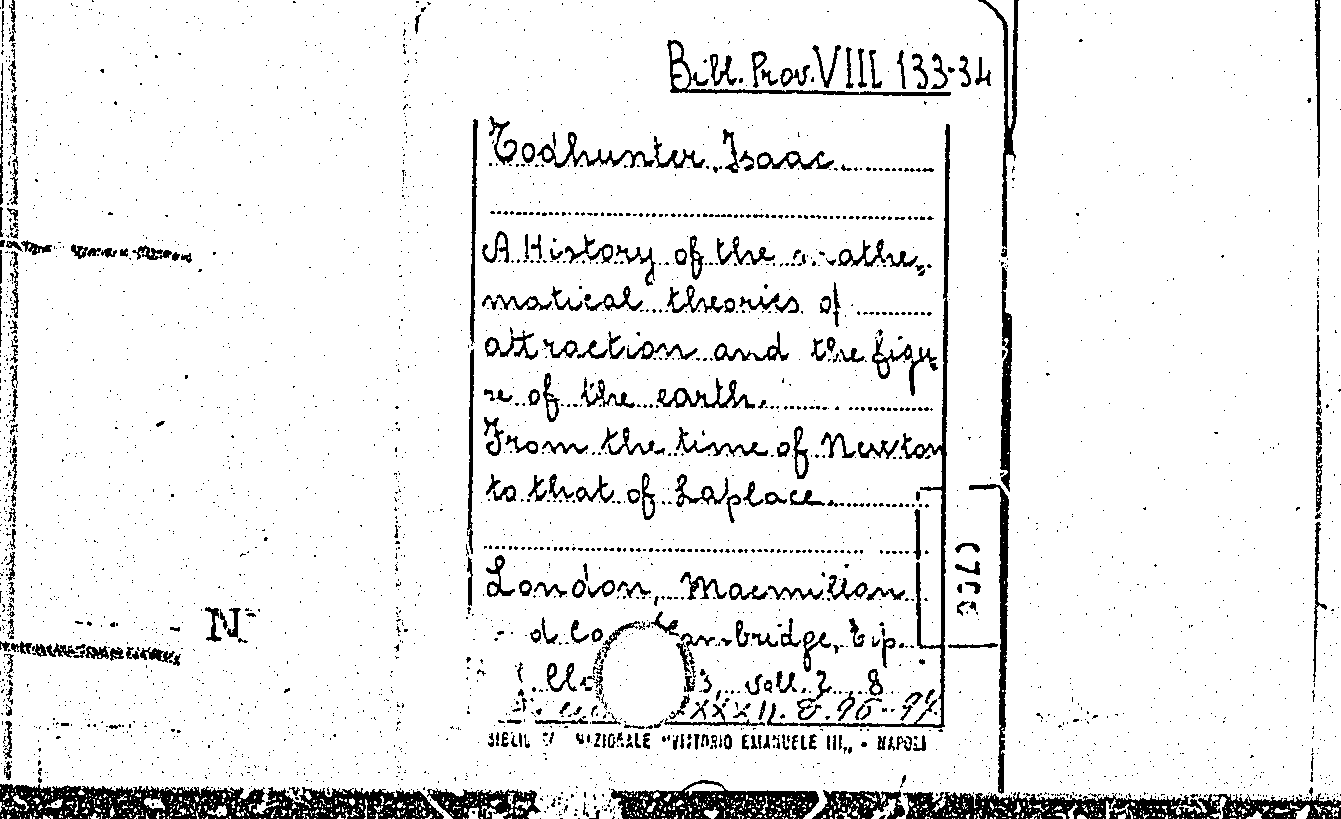 Bibl. Prov. VIII 133-34
Todhunter Isaac.
A History of the mathe„
matical theories of
attraction and the figu„
re of the earth.
From the time of Newton
to that of Laplace.
London, Macmillan
d Co Cambridge, Tip.
3, voll. 2, 8
XXXII. 8. 96-97
NAZIONALE "VITTORIO EMANUELE III„ - NAPOLI
N